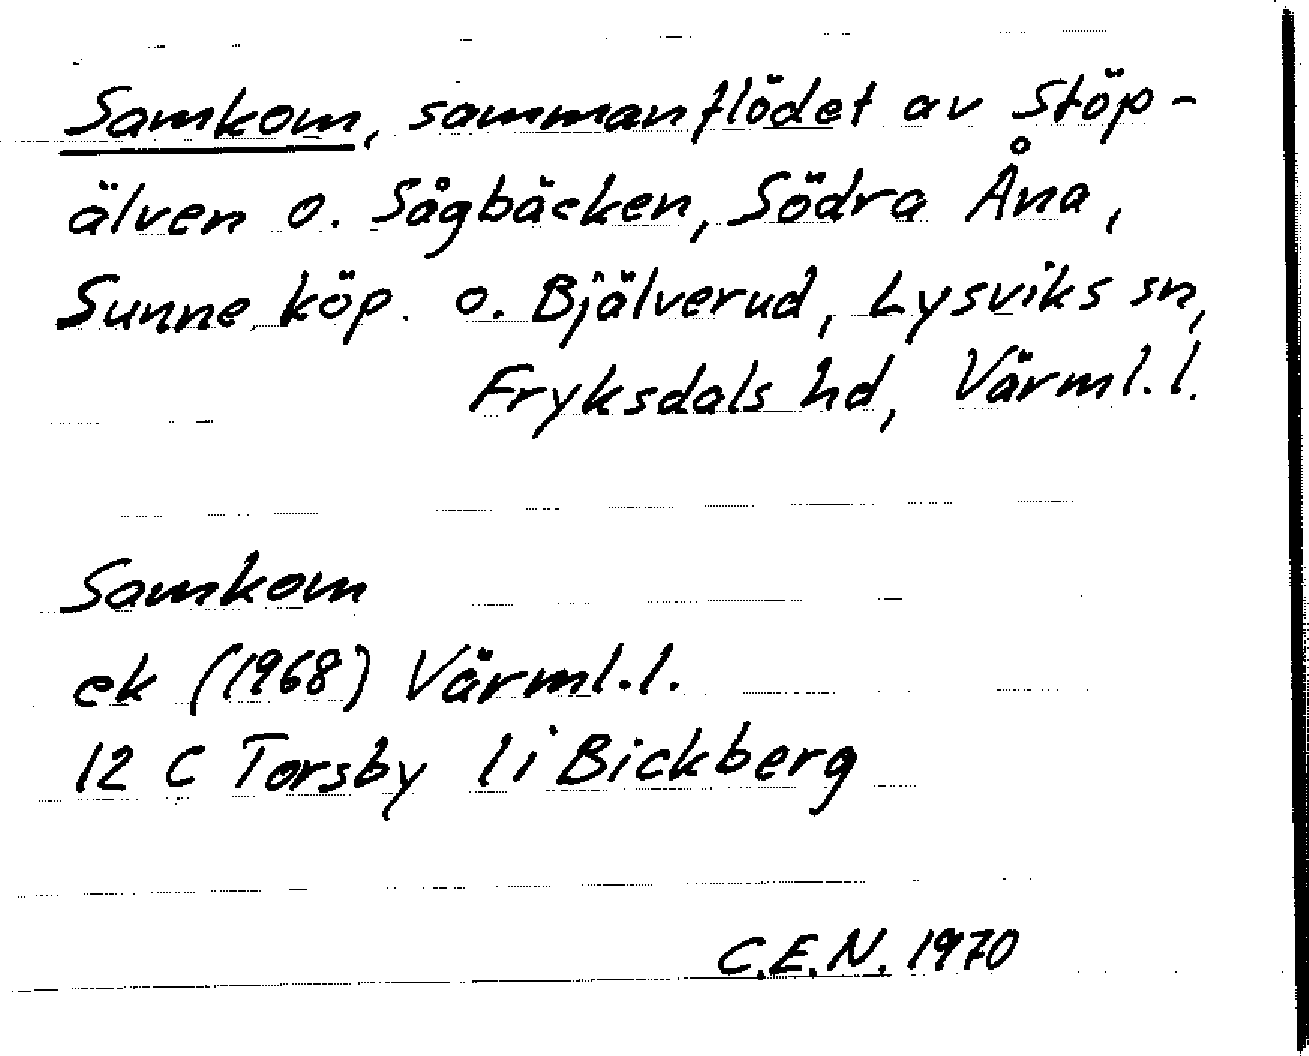 Samkom, sammanflödet av Stöp-
älven o. Sågbäcken, Södra Åna,
Sunne köp. o. Bjälverud, Lysviks sn,
Fryksdals hd, Värml.l.
Samkom
ek (1968) Värml.l.
12 C Torsby 1i Bickberg
C.E.N. 1970